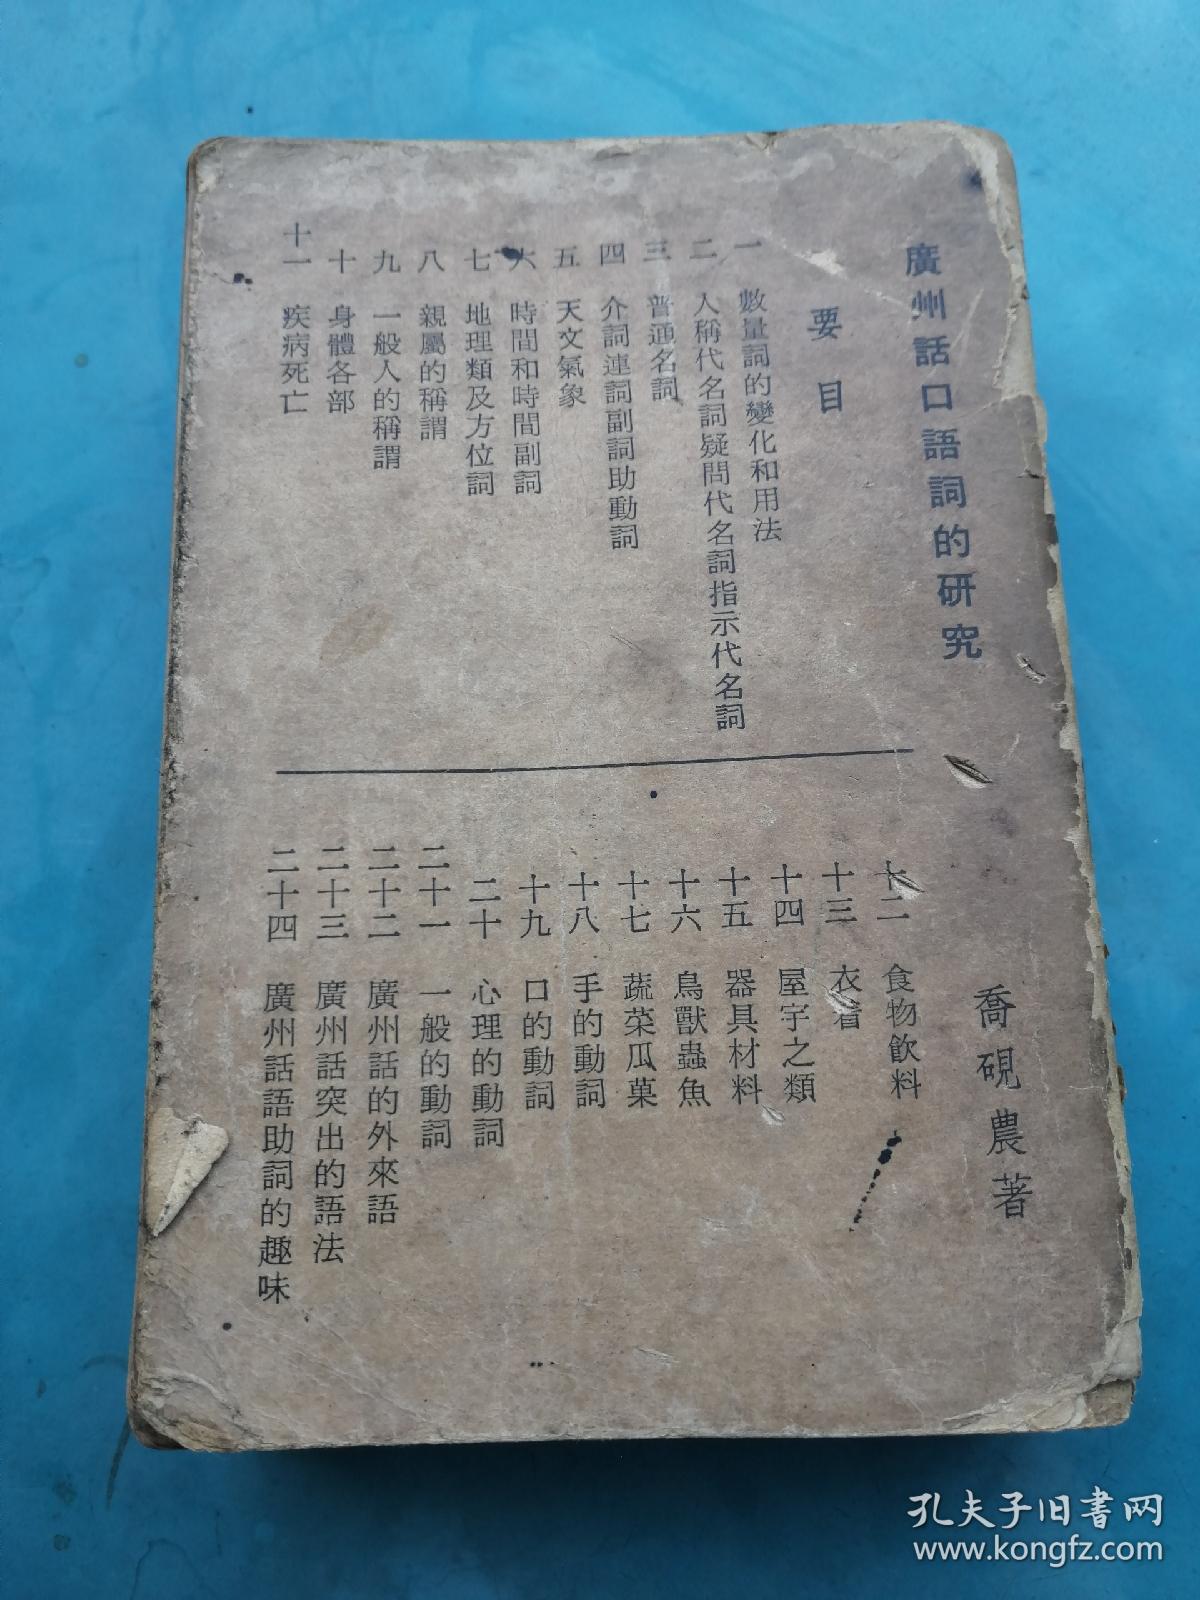 廣州話口語詞的研究
喬硯農著
要目
一 數量詞的變化和用法
二 人稱代名詞疑問代名詞指示代名詞
三 普通名詞
四 介詞連詞副詞助動詞
五 天文氣象
六 時間和時間副詞
七 地理類及方位詞
八 親屬的稱謂
九 一般人的稱謂
十 身體各部
十一 疾病死亡
十二 食物飲料
十三 衣着
十四 屋宇之類
十五 器具材料
十六 鳥獸蟲魚
十七 蔬菜瓜菓
十八 手的動詞
十九 口的動詞
二十 心理的動詞
二十一 一般的動詞
二十二 廣州話的外來語
二十三 廣州話突出的語法
二十四 廣州話語助詞的趣味
孔夫子旧书网
www.kongfz.com